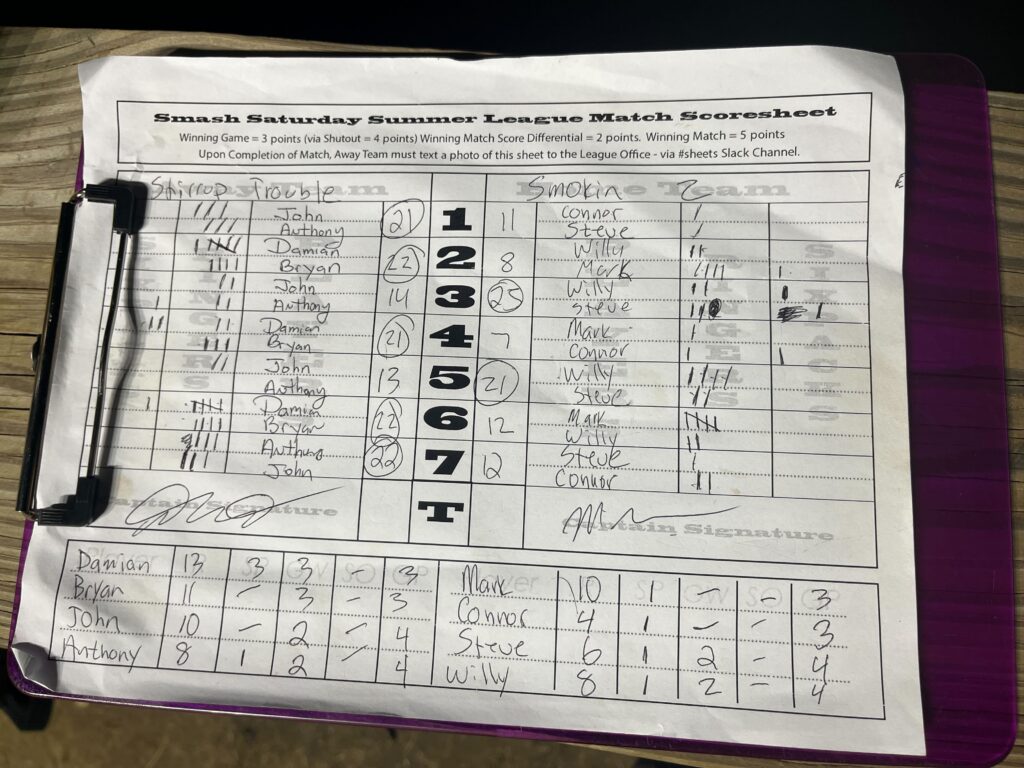 Smash Saturday Summer League Match Scoresheet
Winning Game = 3 points (via Shutout = 4 points) Winning Match Score Differential = 2 points. Winning Match = 5 points
Upon Completion of Match, Away Team must text a photo of this sheet to the League Office - via #sheets Slack Channel.
Stirrup Trouble Team Smokin 2 Team
John 21 1 11 Connor
Anthony Steve
Damian 22 2 8 Willy
Bryan Mark
John 14 3 25 Willy
Anthony Steve
Damian 21 4 7 Mark
Bryan Connor
John 13 5 21 Willy
Anthony Steve
Damian 22 6 12 Mark
Bryan Willy
Anthony 22 7 12 Steve
John Connor
Captain Signature T Captain Signature
Damian 13 3 3 - 3 Mark 10 1 - - 3
Bryan 11 - 3 - 3 Connor 4 1 - - 3
John 10 - 2 - 4 Steve 6 1 2 - 4
Anthony 8 1 2 - 4 Willy 8 1 2 - 4